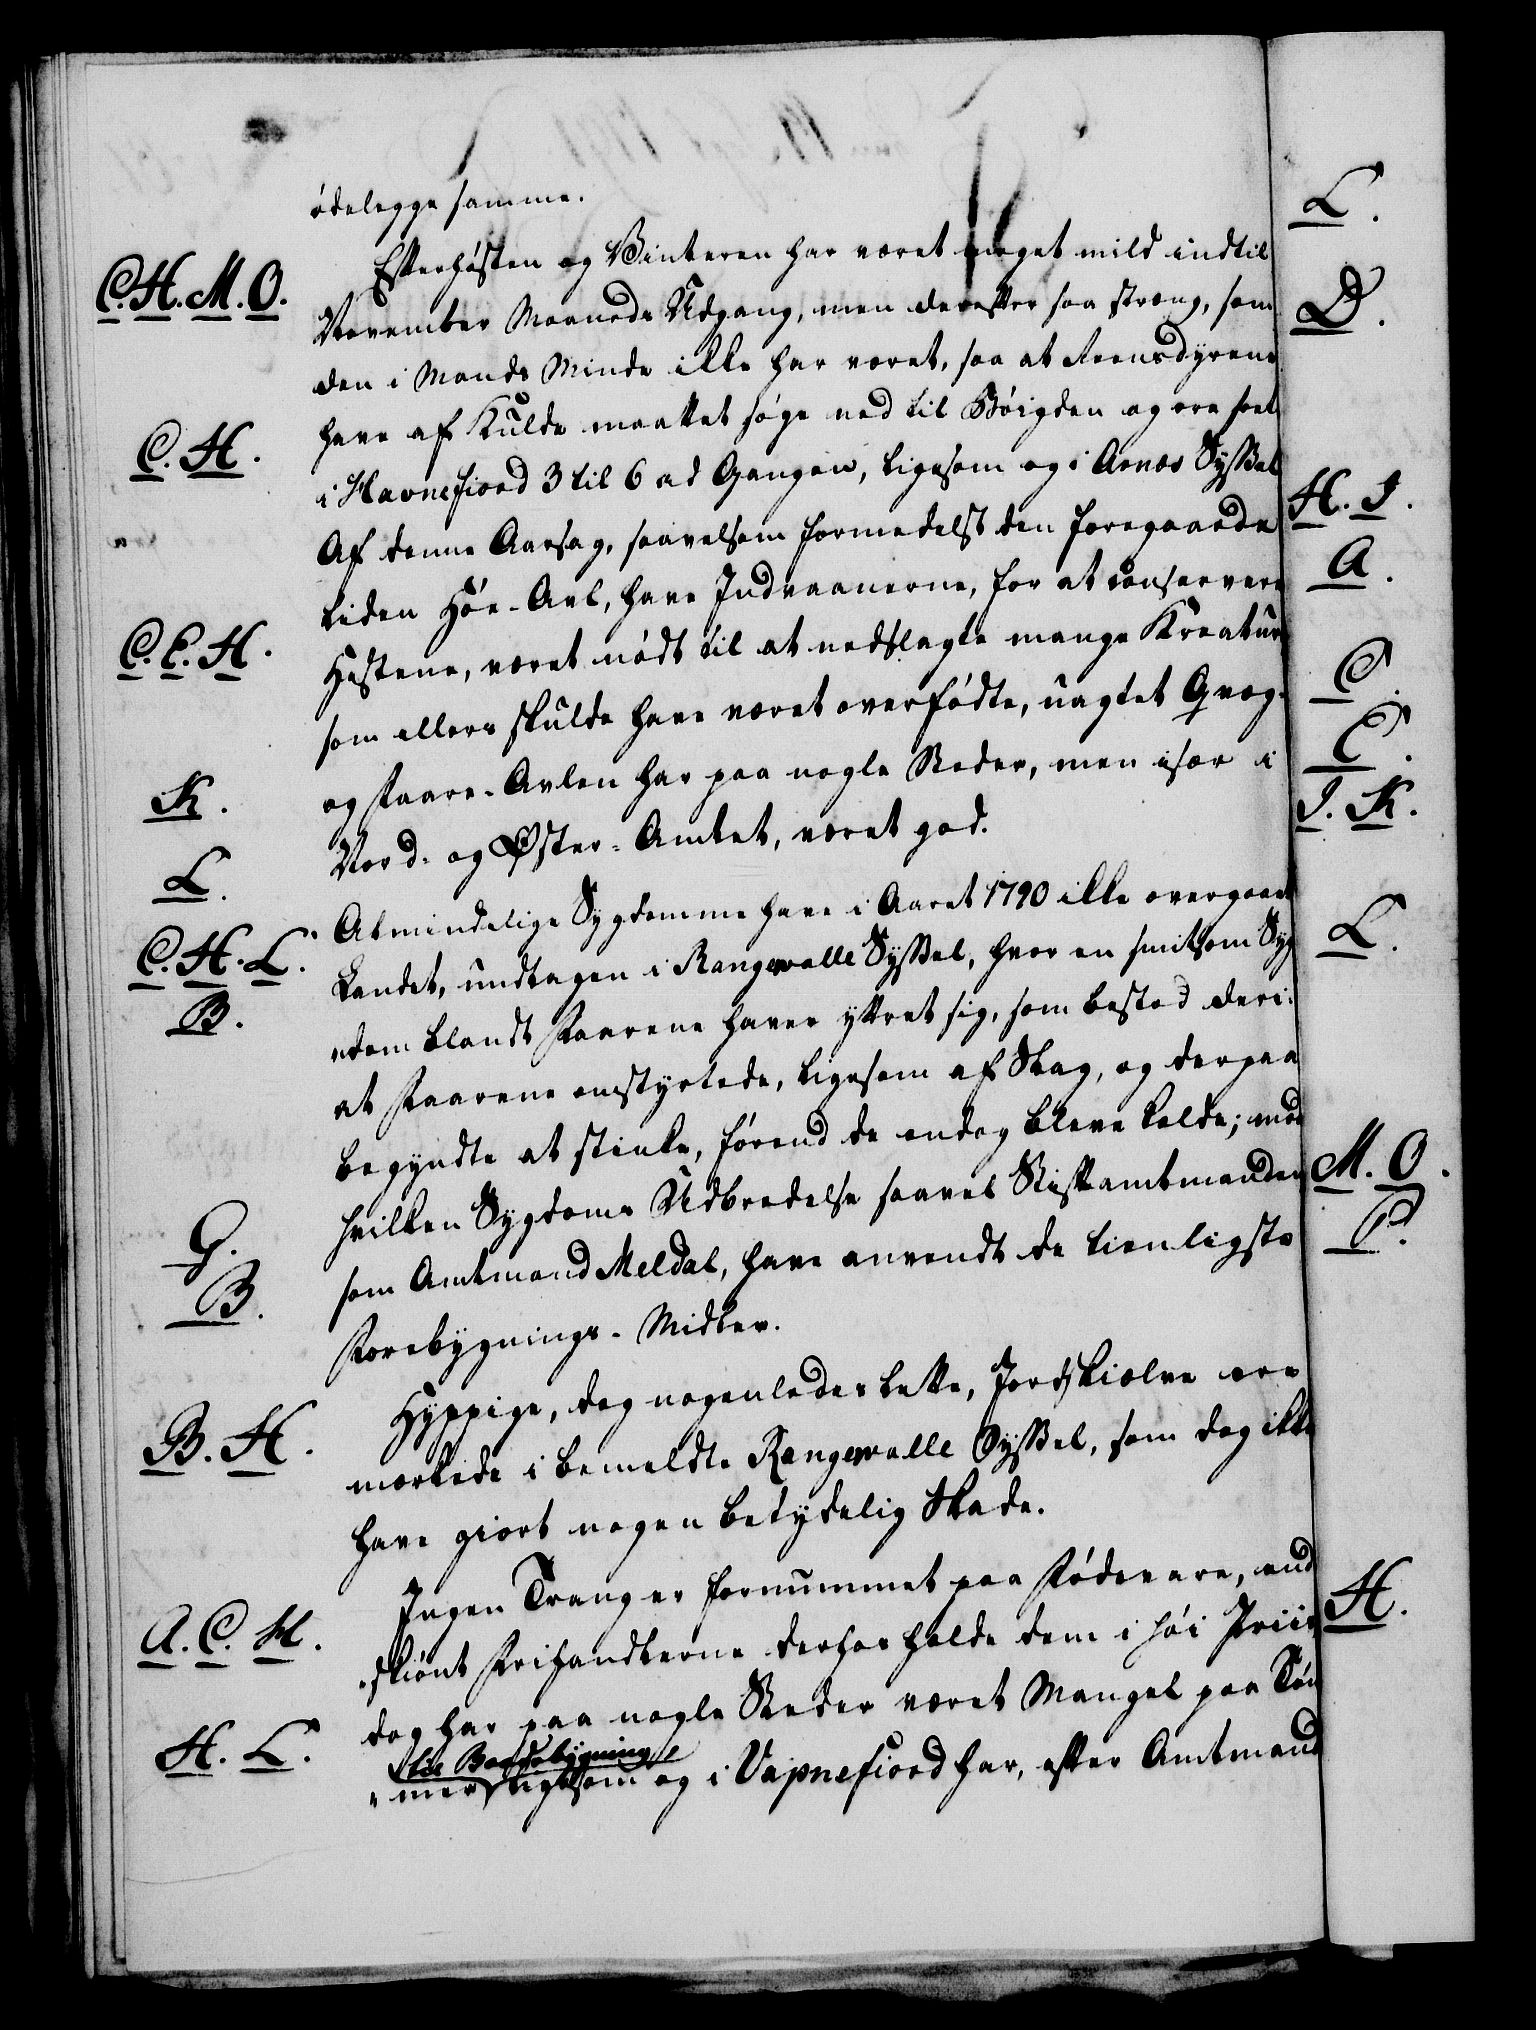 ödelegge samme.
C. H. M. O.
Efterhösten og Vinteren har været meget mild indtil
November Maaneds Udgang, men derefter saa stræng, som
den i Mands Minde ikke har været, saa at Reensdyrene
C. H.
have af Kulde maattet söge ned til Böigden og ere seet
i Havnefiord 3 til 6 ad Gangen, ligesom og i Arnæs Syssel
Af denne Aarsag, saavelsom formedelst den foregaaende
liden Höe-Avl, have Indvaanerne, for at conservere
C. E. H.
Hestene, været nödt til at nedslagte mange Kreature
som ellers skulde have været overfödte, uagtet Qvæg-
K.
og Faare-Avlen har paa nogle Steder, men især i
L.
Nord- og Øster-Amtet, været god.
C. H. L.
Almindelige Sygdomme have i Aaret 1790 ikke overgaaet
B.
Landet, undtagen i Rangervalle Syssel, hvor en smitsom Syg
dom blandt Faarene haver yttret sig, som bestod deri:
at Faarene omstyrtede, ligesom af Slag, og derpaa
begyndte at stinke, förend de endog bleve kolde; mod
G.
hvilken Sygdoms Udbredelse saavel Stiftamtmanden
B.
som Amtmand Meldal, have anvendt de tienligste
Forebygnings-Midler.
B. H.
Hyppige, dog nogenledes lette, Jordskiælve ere
mærkede i bemeldte Rangervalle Syssel, som dog ikke
have giort nogen betydelig Skade.
A. C. H.
Ingen Trang er fornummet paa Födevare, end
skiönt Frihandlerne derhos holde dem i höi Priis
H. L.
dog har paa nogle Steder været Mangel paa Töm
til Baadebygning
mer ligesom og i Vapnefiord har, efter Amtmand
L.
D.
H. I.
A.
C.
C.
I. K.
L.
M. O.
P.
H.